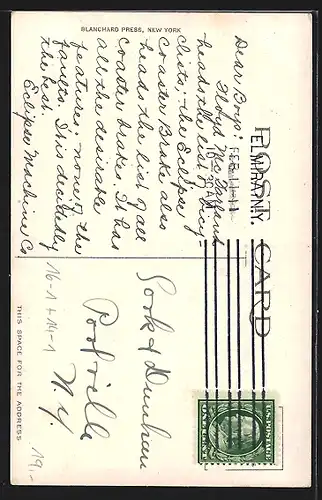 BLANCHARD PRESS, NEW YORK
POST CARD
THIS SPACE FOR THE ADDRESS
ELMIRA, N.Y.
FEB
Dear Boys:
Floyd McFarland
heads the list of bicy-
clists; the Eclipse
Coaster Brake also
heads the list of all
coaster brakes. It has
all the desirable
features; none of the
faults. It is decidedly
the best.
Eclipse Machine Co
& Dunham
Portville
N. Y.
16-1 + 14-1
19.-
U.S. POSTAGE
ONE CENT